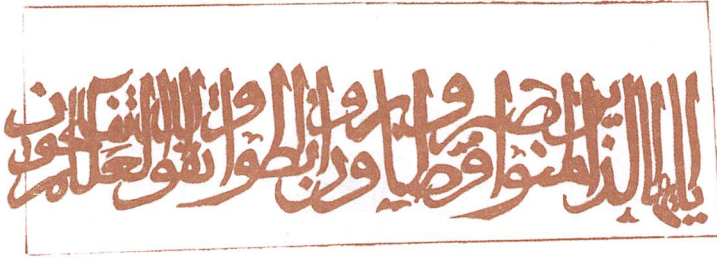 يا أيها الذين آمنوا اصبروا وصابروا ورابطوا واتقوا الله لعلكم تفلحون